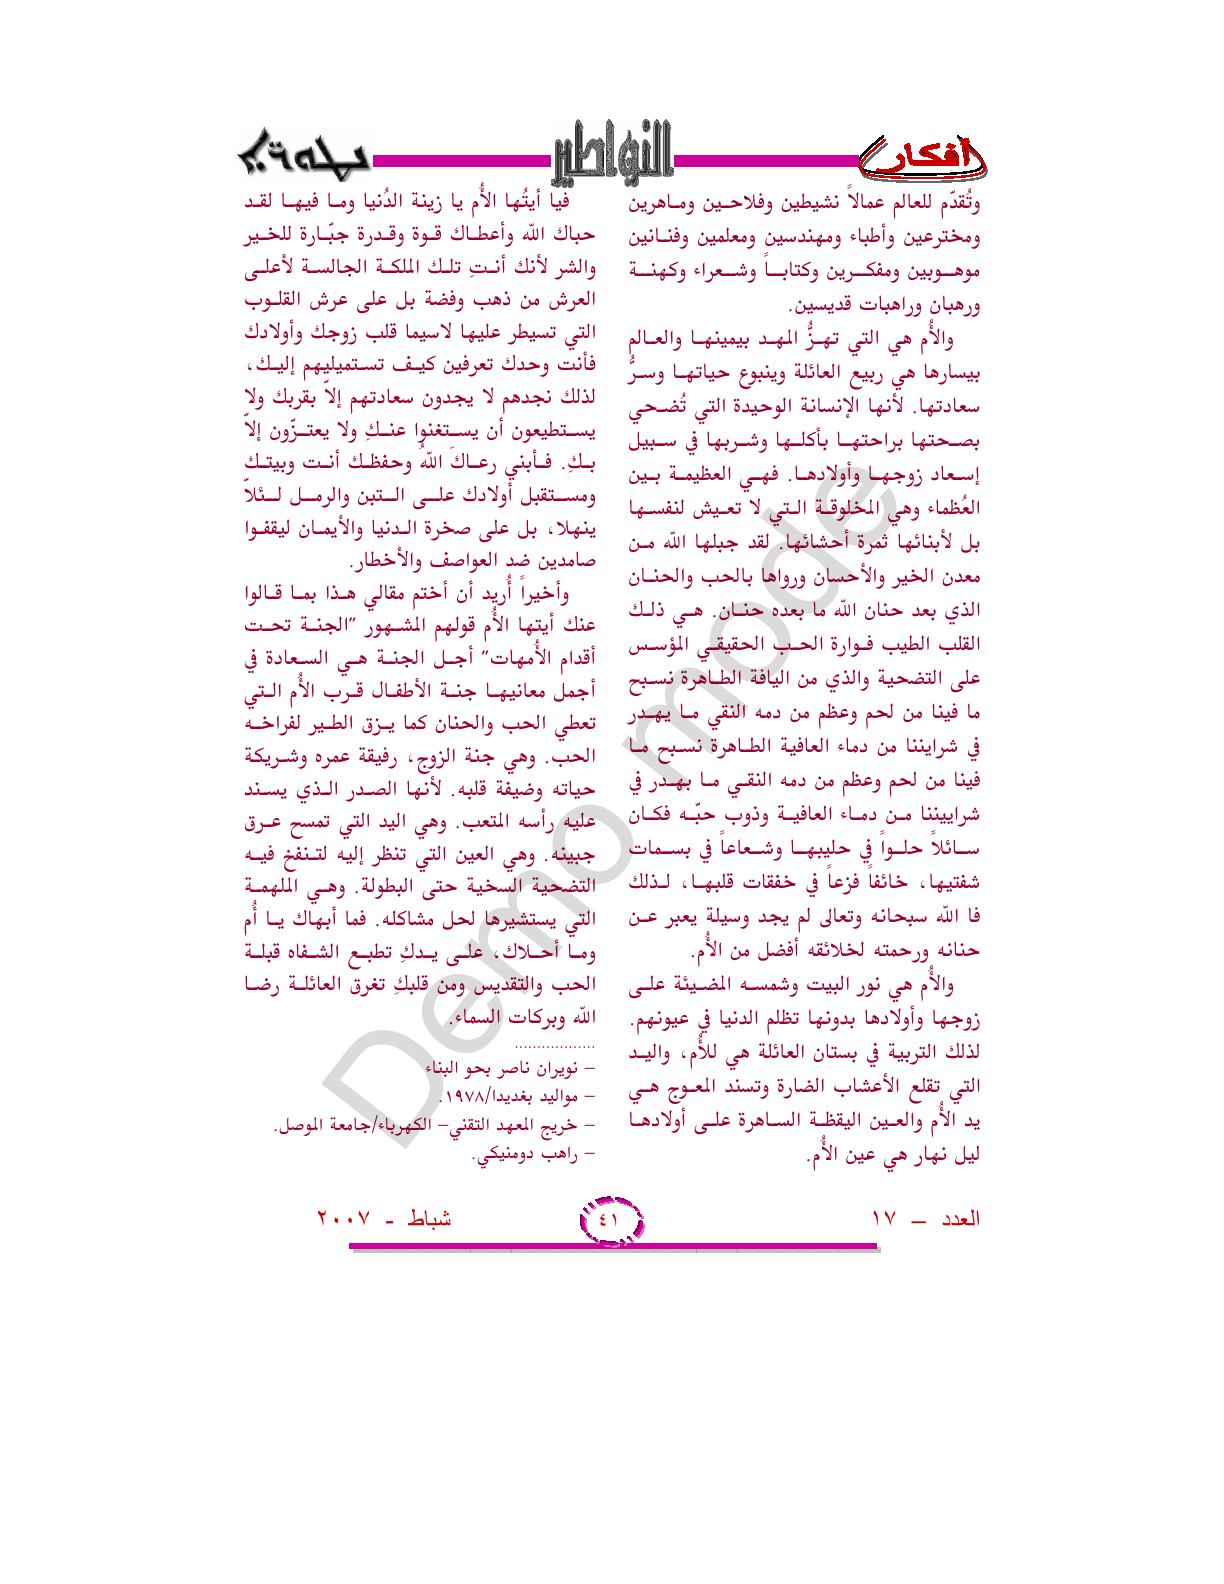 أفكار
النواطير
وتُقدّم للعالم عمالاً نشيطين وفلاحين وماهرين
ومخترعين وأطباء ومهندسين ومعلمين وفنانين
موهوبين ومفكرين وكتاباً وشعراء وكهنة
ورهبان وراهبات قديسين.
والأُم هي التي تهزُّ المهد بيمينها والعالم
بيسارها هي ربيع العائلة وينبوع حياتها وسرُّ
سعادتها. لأنها الإنسانة الوحيدة التي تُضحي
بصحتها براحتها بأكلها وشربها في سبيل
إسعاد زوجها وأولادها. فهي العظيمة بين
العُظماء وهي المخلوقة التي لا تعيش لنفسها
بل لأبنائها ثمرة أحشائها. لقد جبلها الله من
معدن الخير والأحسان ورواها بالحب والحنان
الذي بعد حنان الله ما بعده حنان. هي ذلك
القلب الطيب فوارة الحب الحقيقي المؤسس
على التضحية والذي من اليافة الطاهرة نسبح
ما فينا من لحم وعظم من دمه النقي ما يهدر
في شرايننا من دماء العافية الطاهرة نسبح ما
فينا من لحم وعظم من دمه النقي ما بهدر في
شراييننا من دماء العافية وذوب حبّه فكان
سائلاً حلواً في حليبها وشعاعاً في بسمات
شفتيها، خائفاً فزعاً في خفقات قلبها، لذلك
فا الله سبحانه وتعالى لم يجد وسيلة يعبر عن
حنانه ورحمته لخلائقه أفضل من الأُم.
والأُم هي نور البيت وشمسه المضيئة على
زوجها وأولادها بدونها تظلم الدنيا في عيونهم.
لذلك التربية في بستان العائلة هي للأُم، واليد
التي تقلع الأعشاب الضارة وتسند المعوج هي
يد الأُم والعين اليقظة الساهرة على أولادها
ليل نهار هي عين الأُم.
فيا أيتُها الأُم يا زينة الدُنيا وما فيها لقد
حباك الله وأعطاك قوة وقدرة جبّارة للخير
والشر لأنك أنتِ تلك الملكة الجالسة لأعلى
العرش من ذهب وفضة بل على عرش القلوب
التي تسيطر عليها لاسيما قلب زوجك وأولادك
فأنت وحدك تعرفين كيف تستميليهم إليك،
لذلك نجدهم لا يجدون سعادتهم إلاّ بقربك ولا
يستطيعون أن يستغنوا عنكِ ولا يعتزّون إلاّ
بكِ. فأبني رعاكَ اللهُ وحفظك أنت وبيتك
ومستقبل أولادك على التبن والرمل لئلاّ
ينهلا، بل على صخرة الدنيا والأيمان ليقفوا
صامدين ضد العواصف والأخطار.
وأخيراً أُريد أن أختم مقالي هذا بما قالوا
عنك أيتها الأُم قولهم المشهور ”الجنة تحت
أقدام الأُمهات” أجل الجنة هي السعادة في
أجمل معانيها جنة الأطفال قرب الأُم التي
تعطي الحب والحنان كما يزق الطير لفراخه
الحب. وهي جنة الزوج، رفيقة عمره وشريكة
حياته وضيفة قلبه. لأنها الصدر الذي يسند
عليه رأسه المتعب. وهي اليد التي تمسح عرق
جبينه. وهي العين التي تنظر إليه لتنفخ فيه
التضحية السخية حتى البطولة. وهي الملهمة
التي يستشيرها لحل مشاكله. فما أبهاك يا أُم
وما أحلاك، على يدكِ تطبع الشفاه قبلة
الحب والتقديس ومن قلبكِ تغرق العائلة رضا
الله وبركات السماء.
..................
– نويران ناصر بحو البناء
– مواليد بغديدا/١٩٧٨.
– خريج المعهد التقني– الكهرباء/جامعة الموصل.
– راهب دومنيكي.
العدد – ١٧
٤١
شباط - ٢٠٠٧
Demo mode